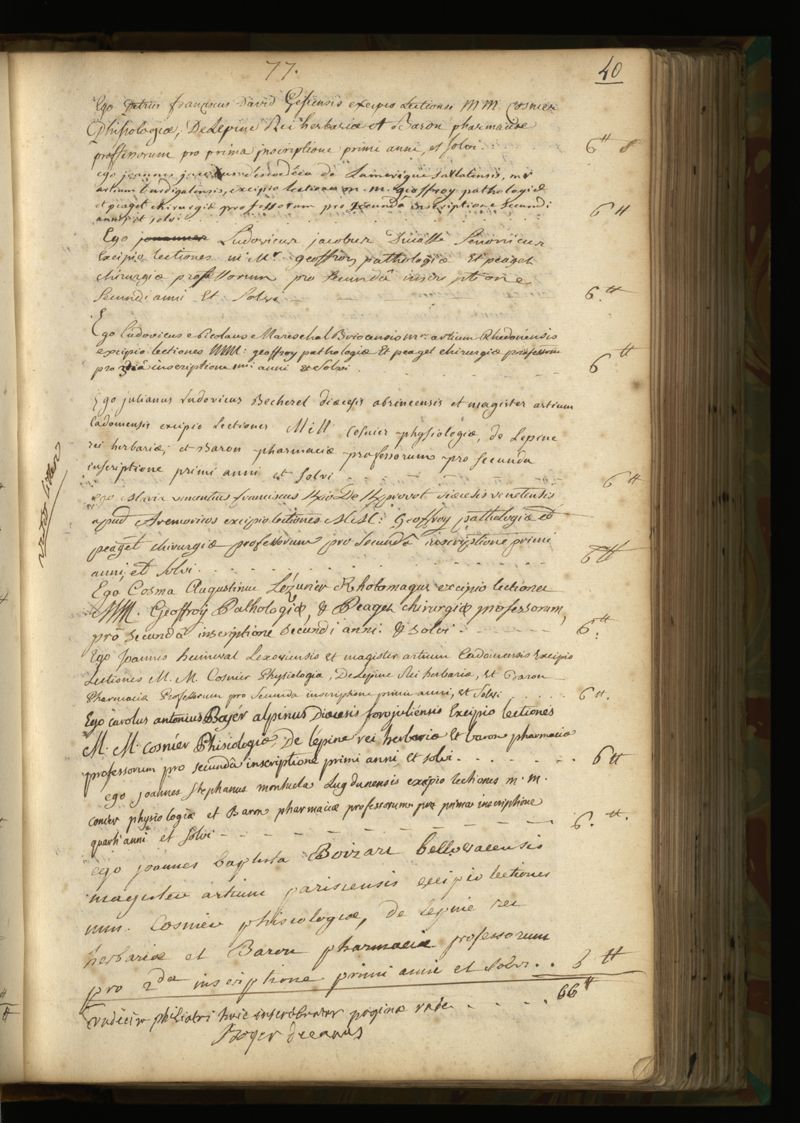 77.
40
Ego petrus franciscus David excipio Lectiones M M. Cosnier
Phisiologiæ, DeLepine Rei herbariæ et Baron pharmaciæ
professorum pro prima inscriptione primi anni, et solvi. 6 ₶
ego joannes de Lamerique
artium burdigalensis, excipio lectiones m. m. geoffroy pathologiæ
et peaget chirurgiæ professorum pro secunda inscriptione secundi
anni et solvi 6 ₶
Ego Ludovicus jacobus Senonicus
Excipio lectiones M geoffroy pathologiæ Et peaget
chirurgiæ professorum pro secundâ inscriptione
secundi anni Et Solvi 6. ₶
Ego ludovicus Nicolaus Mareschal Briocensis artium Rhedonensis
excipio lectiones MM: geoffroy pathologiæ Et peaget chirurgiæ professorum
pro inscriptione anni et solvi. 6 ₶
Ego julianus Ludovicus Becherel diœcesis abrincensis et magister artium
Cadomensis excipio Lectiones M M Cosnier physiologiæ, de Lepine
rei herbariæ, et Baron pharmaciæ professorum pro secunda
inscriptione primi anni et solvi 6 ₶
ego Maria vincentius franciscus De diœcesis venetensis
apud Aremoricos excipio lectiones MM: Geoffroy pathologiæ et
peaget chirurgiæ professorum pro secundâ inscriptione primi
anni, et solvi. 6 ₶
Ego Cosma Augustinus Lezurier Rhotomagus excipio lectiones
MM. Geoffroy Pathologiæ, & Peaget chirurgiæ professorum,
prô secundâ inscriptione secundi anni. & solvi. 6. ₶
Ego Joannes Lexoviensis et magister artium Cadomensis Excipio
Lectiones M. M. Cosnier Physiologia, DeLepine Rei herbaria, et Baron
Pharmaciæ Professorum pro secunda inscriptione primi anni, et solvi 6 ₶.
Ego carolus antonius Bayér alpinus Diœcesis forojuliensis Excipio lectiones
M. M. cosnier Phisiologiæ, De lepine rei herbariæ et baron pharmaciæ
professorum pro secundâ inscriptione primi anni et solvi. 6 ₶
ego joannes stephanus montucla Lugdunensis excipio lectiones m. m.
physiologiæ et Baron pharmaciæ professorum pro prima inscriptione
quarti anni et solvi 6. ₶.
ego joannes baptista Boizart bellovacensis
magister artium parisiensis excipio lectiones
mm. Cosnier phisiologiæ, de lepine rei
herbariæ et Baron pharmaciæ professorum
pro 2da inscriptione primi anni et solvi. 6 ₶
Undecim philiatri huic inscribuntur paginæ 66 ₶
Boyer decanus